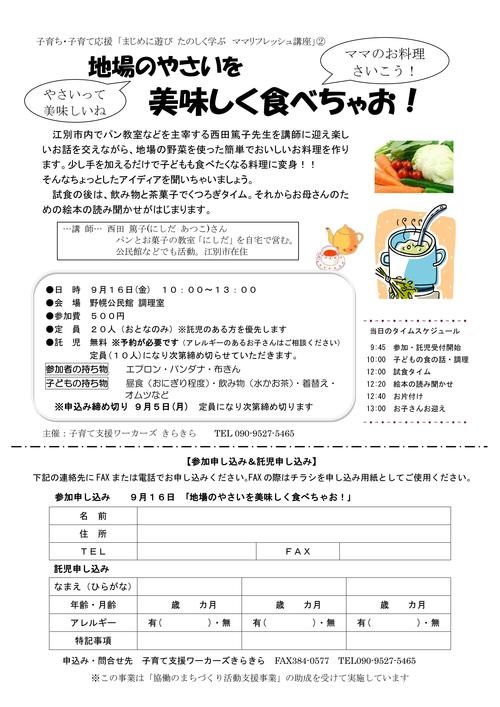 子育ち・子育て応援「まじめに遊び たのしく学ぶ ママリフレッシュ講座」②
ママのお料理
さいこう！
地場のやさいを
やさいって
美味しいね
美味しく食べちゃお！
江別市内でパン教室などを主宰する西田篤子先生を講師に迎え楽し
いお話を交えながら、地場の野菜を使った簡単でおいしいお料理を作り
ます。少し手を加えるだけで子どもも食べたくなる料理に変身！！
そんなちょっとしたアイディアを聞いちゃいましょう。
試食の後は、飲み物と茶菓子でくつろぎタイム。それからお母さんのた
めの絵本の読み聞かせがはじまります。
…講 師… 西田 篤子(にしだ あつこ)さん
パンとお菓子の教室「にしだ」を自宅で営む。
公民館などでも活動。江別市在住
●日　時　９月１６日(金)　１０：００～１３：００
●会　場　野幌公民館 調理室
●参加費　５００円
●定　員　２０人（おとなのみ）※託児のある方を優先します
●託　児　無料 ※予約が必要です（アレルギーのあるお子さんはご相談ください）
定員(１０人)になり次第締め切らせていただきます。
参加者の持ち物　エプロン・バンダナ・布きん
子どもの持ち物　昼食（おにぎり程度）・飲み物（水かお茶）・着替え・
オムツなど
※申込み締め切り ９月５日(月)　定員になり次第締め切ります
当日のタイムスケジュール
9:45 参加・託児受付開始
10:00 子どもの食の話・調理
12:00 試食タイム
12:20 絵本の読み聞かせ
12:40 お片付け
13:00 お子さんお迎え
主催：子育て支援ワーカーズ きらきら　TEL 090-9527-5465
【参加申し込み＆託児申し込み】
下記の連絡先にFAXまたは電話でお申し込みください。FAXの際はチラシを申し込み用紙としてご使用ください。
参加申し込み　９月１６日　「地場のやさいを美味しく食べちゃお！」
名　前
住　所
ＴＥＬ　ＦＡＸ
託児申し込み
なまえ（ひらがな）
年齢・月齢　歳　カ月　歳　カ月　歳　カ月
アレルギー　有（　　）・無　有（　　）・無　有（　　）・無
特記事項
申込み・問合せ先　子育て支援ワーカーズきらきら　FAX384-0577　TEL090-9527-5465
※この事業は「協働のまちづくり活動支援事業」の助成を受けて実施しています